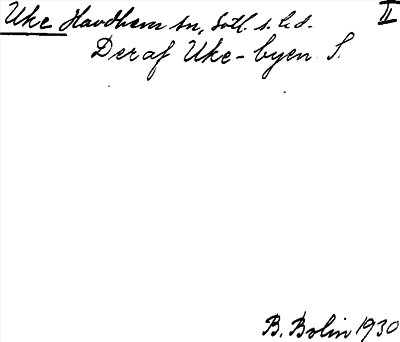 Uke Havdhem sn, Gotl. s. hd. II
Deraf Uke-byen S.
B. Bolin 1930